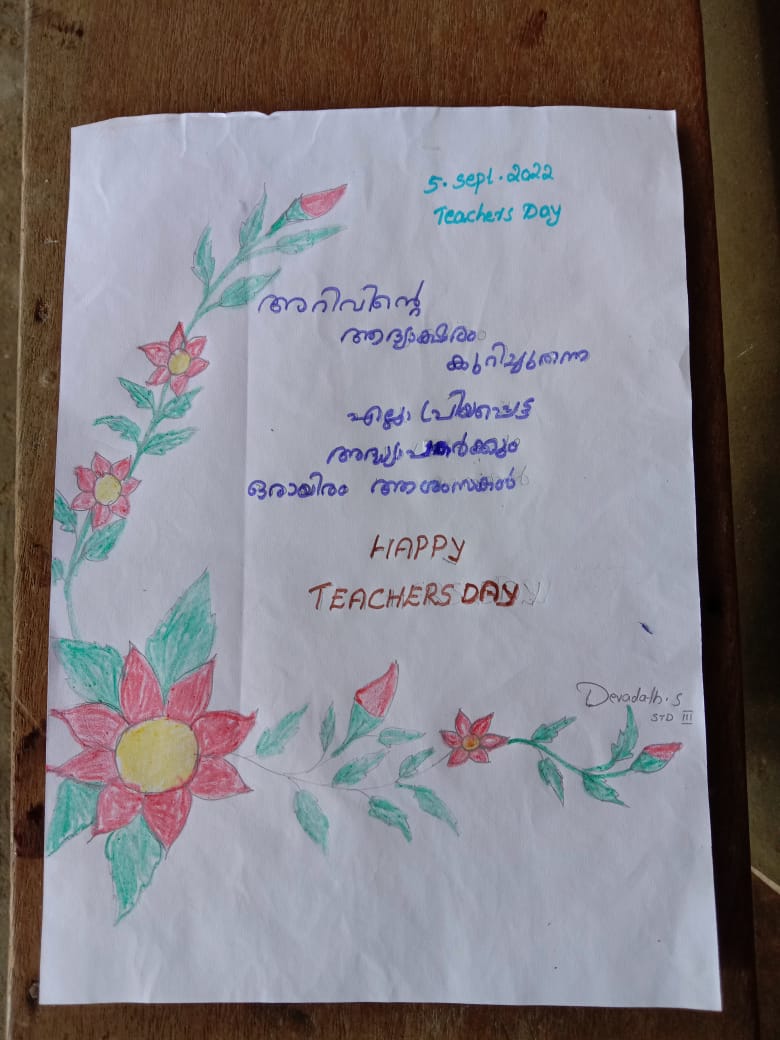 5. Sept. 2022
Teachers Day
അറിവിന്റെ
ആദ്യാക്ഷരം
കുറിച്ചുതന്ന
എല്ലാ പ്രിയപ്പെട്ട
അദ്ധ്യാപകർക്കും
ഒരായിരം ആശംസകൾ
HAPPY
TEACHERS DAY
Devadath.S
STD III